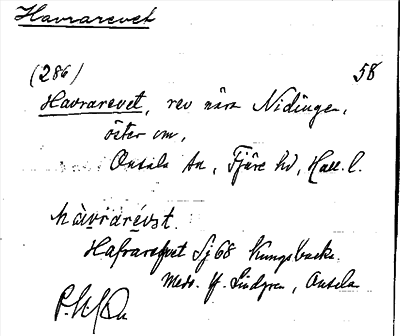 Havrarevet
(286) 58
Havrarevet, rev nära Nidingen,
öster om,
Onsala sn, Fjäre hd, Hall. l.
hàvrarévst.
Hafrarefvet Sj 68 Kungsbacka.
Medd. H. Lindgren, Onsala